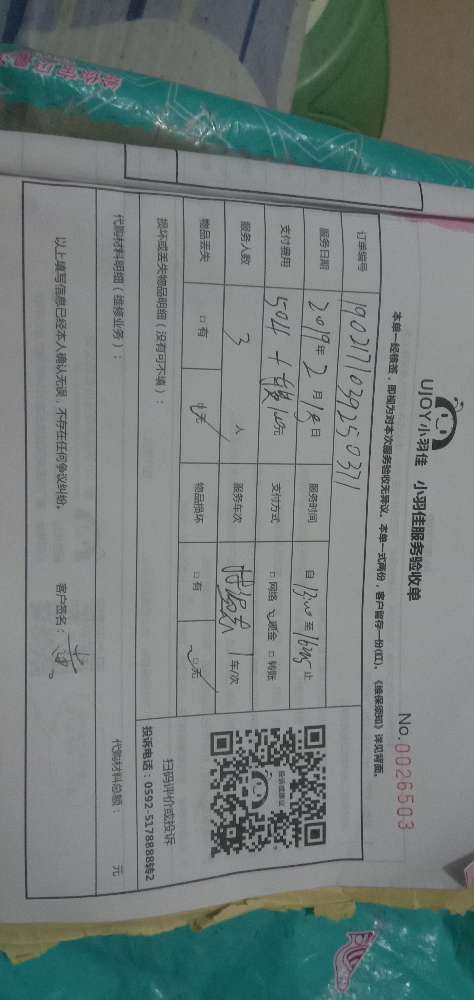 UJOY小羽佳 小羽佳服务验收单
No.0026503
本单一经核签，即视为对本次服务验收无异议。本单一式两份，客户留存一份(红)。《维保须知》详见背面。
订单编号 190217103925037​1
服务日期 2019年2月18日 服务时间 自 至 止
支付费用 504 + 支付方式 □网络 现金 □转账
服务人数 3 人 服务车次 1 车/次
物品丢失 □有 □无 物品损坏 □有 □无
扫码评价或投诉
投诉电话：0592-5178888转2
损坏或丢失物品明细（没有可不填）：
代购材料明细（维修业务）： 代购材料总额： 元
以上填写信息已经本人确认无误，不存在任何争议纠纷。 客户签名：